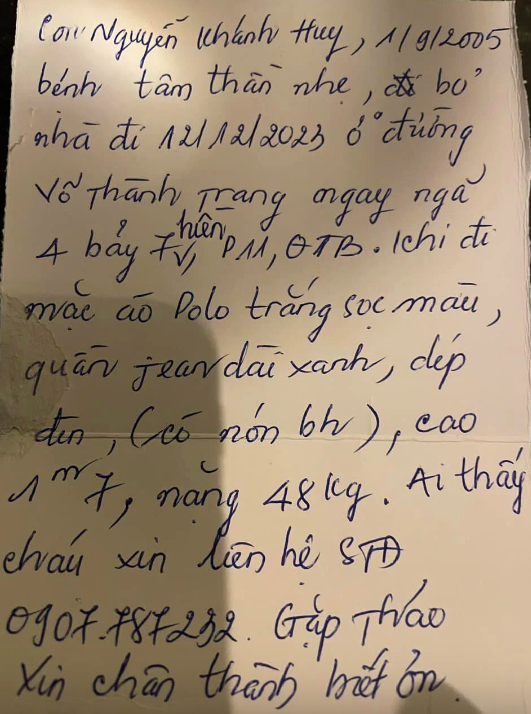 Con Nguyễn Khánh Huy, 1/9/2005
bệnh tâm thần nhẹ, bỏ
nhà đi 12/12/2023 ở đường
Võ Thành Trang ngay ngã
4 bảy Hiền, P11, QTB. Khi đi
mặc áo Polo trắng sọc màu,
quần jean dài xanh, dép
đen, (có nón bh), cao
1m7, nặng 48kg. Ai thấy
cháu xin liên hệ SĐT
0907.787232. Gặp Thảo
Xin chân thành biết ơn.